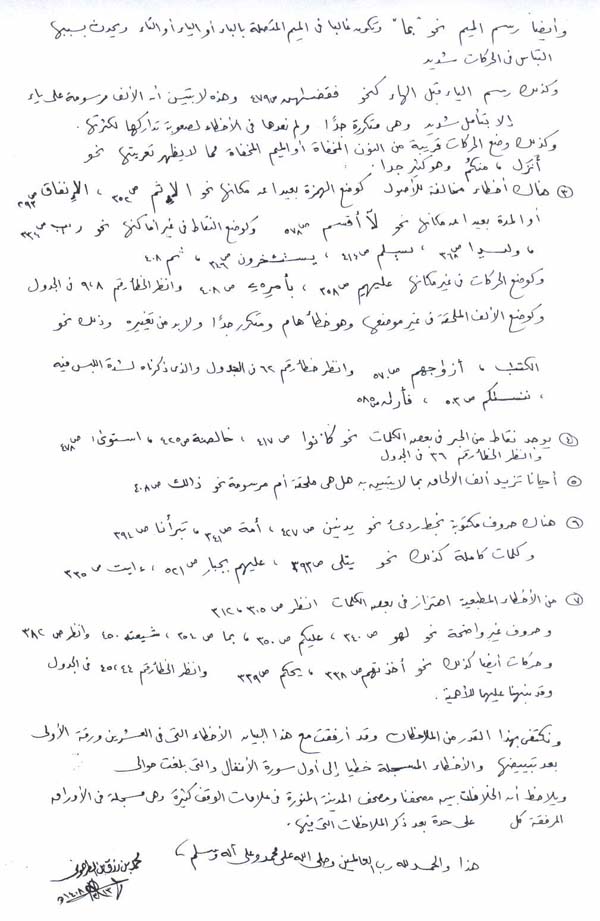 وأيضاً رسم الميم نحو "بما" وتكون غالبا في الميم المتصلة بالباء أو الياء أو التاء ويحدث بسببها
التباس في الحركات شديد
وكذلك رسم الياء قبل الهاء كنحو فقضـٰهن ص٤٧٩ وهذه لا يتبين أنه الألف مرسومة على ياء
إلا بتأمل شديد وهى متكررة جدًا ولم نعدها في الأخطاء لصعوبة تداركها لكثرتها.
وكذلك وضع الحركات قريبة من النون المخفاة أو الميم المخفاة مما لا يظهر تعريتها نحو
أنزل ، منكم وهو كثير جدا.
③ هناك أخطاء مخالفة للأصول كوضع الهمزة بعيدا عن مكانها نحو الإثم ص٣٥٢ ، الإنفاق ص٢٩٣
أو المدة بعيدا عن مكانها نحو لآ أقسم ص٥٧٨ وكوضع النقاط في غير أماكنها نحو ريب ص٣٣٤
، وليدا ص٣٦٨ ، سبيلم ص٤١٤ ، يستسخرون ص٤٤٦ ، ثم ٤٠٨
وكوضع الحركات في غير مكانها عليهم ص٣٥٨ ، بأمره ص٤٠٨ وانظر الخطأ رقم ٩،٨ في الجدول
وكوضع الألف الملحقة في غير موضعها وهو خطأ هام ومتكرر جدًا ولا بد من تغييره وذلك نحو
الكتٰب ، أزوٰجهم ص٥٧٠ وانظر خطأ رقم ٦٢ في الجدول والذى ذكرناه لشدة اللبس فيه
، ننسٰكم ص٥٠٣ ، فأرٰه ص٥٨٥
④ يوجد نقاط من الحبر في بعض الكلمات نحو كانوا ص٤١٧ ، خالصة ص٤٢٥ ، استوى ص٤٧٨
وانظر الخطأ رقم ٣٦ في الجدول
⑤ أحيانا تزيد ألف الإلحاق بما لا يتبين به هل هى ملحقة أم مرسومة نحو ذالك ص٤٠٨
⑥ هناك حروف مكتوبة بخط ردئ نحو يدنين ص٤٢٧ ، أمة ص٣٤١ ، تبرأنا ص٣٩٤
وكلمات كاملة كذلك نحو يتلى ص٣٩٣ ، عليهم بجبار ص٥٢١ ، ءايت ص٣٣٥
⑦ من الأخطاء المطبعية اهتزاز في بعض الكلمات انظر ص٣٠٥ ، ٣١٢
وحروف غير واضحة نحو لهو ص٣٤٠ ، عليكم ص٣٥٠ ، بما ص٢٥٤ ، شيعته ٤٥٠ وانظر ص٣٨٢
وحركات أيضا كذلك نحو أخذتهم ص٣٣٨ ، يحكم ص٣٣٩ وانظر الخطأ رقم ٤٤ ، ٤٥ في الجدول
وقد نبهنا عليها للأهمية.
ونكتفى بهذا القدر من الملاحظات وقد أرفقت مع هذا البيان الأخطاء التى في العشرين ورقة الأولى
بعد تبييضها والأخطاء المسجلة خطيا إلى أول سورة الأنفال والتى بلغت حوالى
ويلاحظ أن الخلافات بين مصحفنا ومصحف المدينة المنورة في علامات الوقف كثيرة وهى مسجلة في الأوراق
المرفقة كل على حدة بعد ذكر الملاحظات التى فيها.
هذا والحمد لله رب العالمين وصلى الله على محمد وعلى آله وسلم ،
محمد بن رزق بن الطرهونى